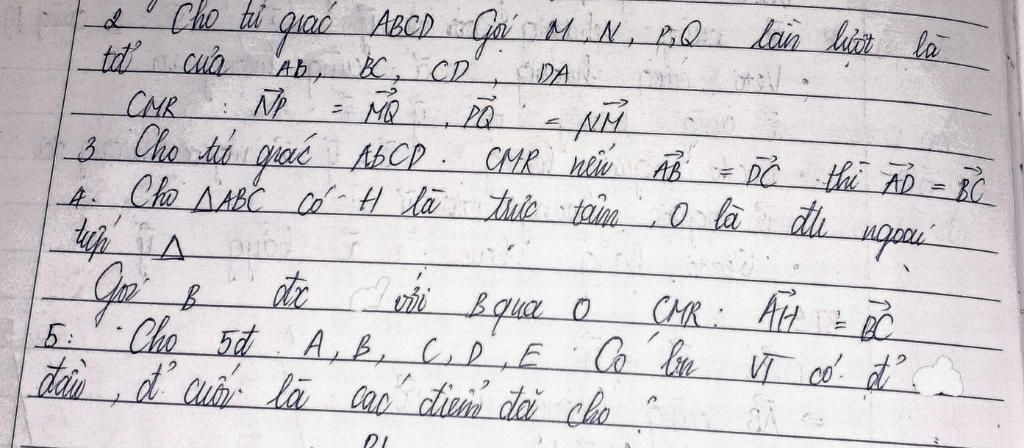 2 Cho tứ giác ABCD Gọi M, N, P, Q lần lượt là
tđ của AB, BC, CD, DA
CMR : \vec{NP} = \vec{MQ} , \vec{PQ} = \vec{NM}
3 Cho tứ giác ABCD . CMR nếu \vec{AB} = \vec{DC} thì \vec{AD} = \vec{BC}
4. Cho ΔABC có H là trực tâm , O là đt ngoại
tiếp Δ
Gọi B đx với B qua O CMR: \vec{AH} = \vec{BC}
5: Cho 5đ . A, B, C, D, E Có bn VT có đ'
đầu , đ' cuối là các điểm đã cho ?